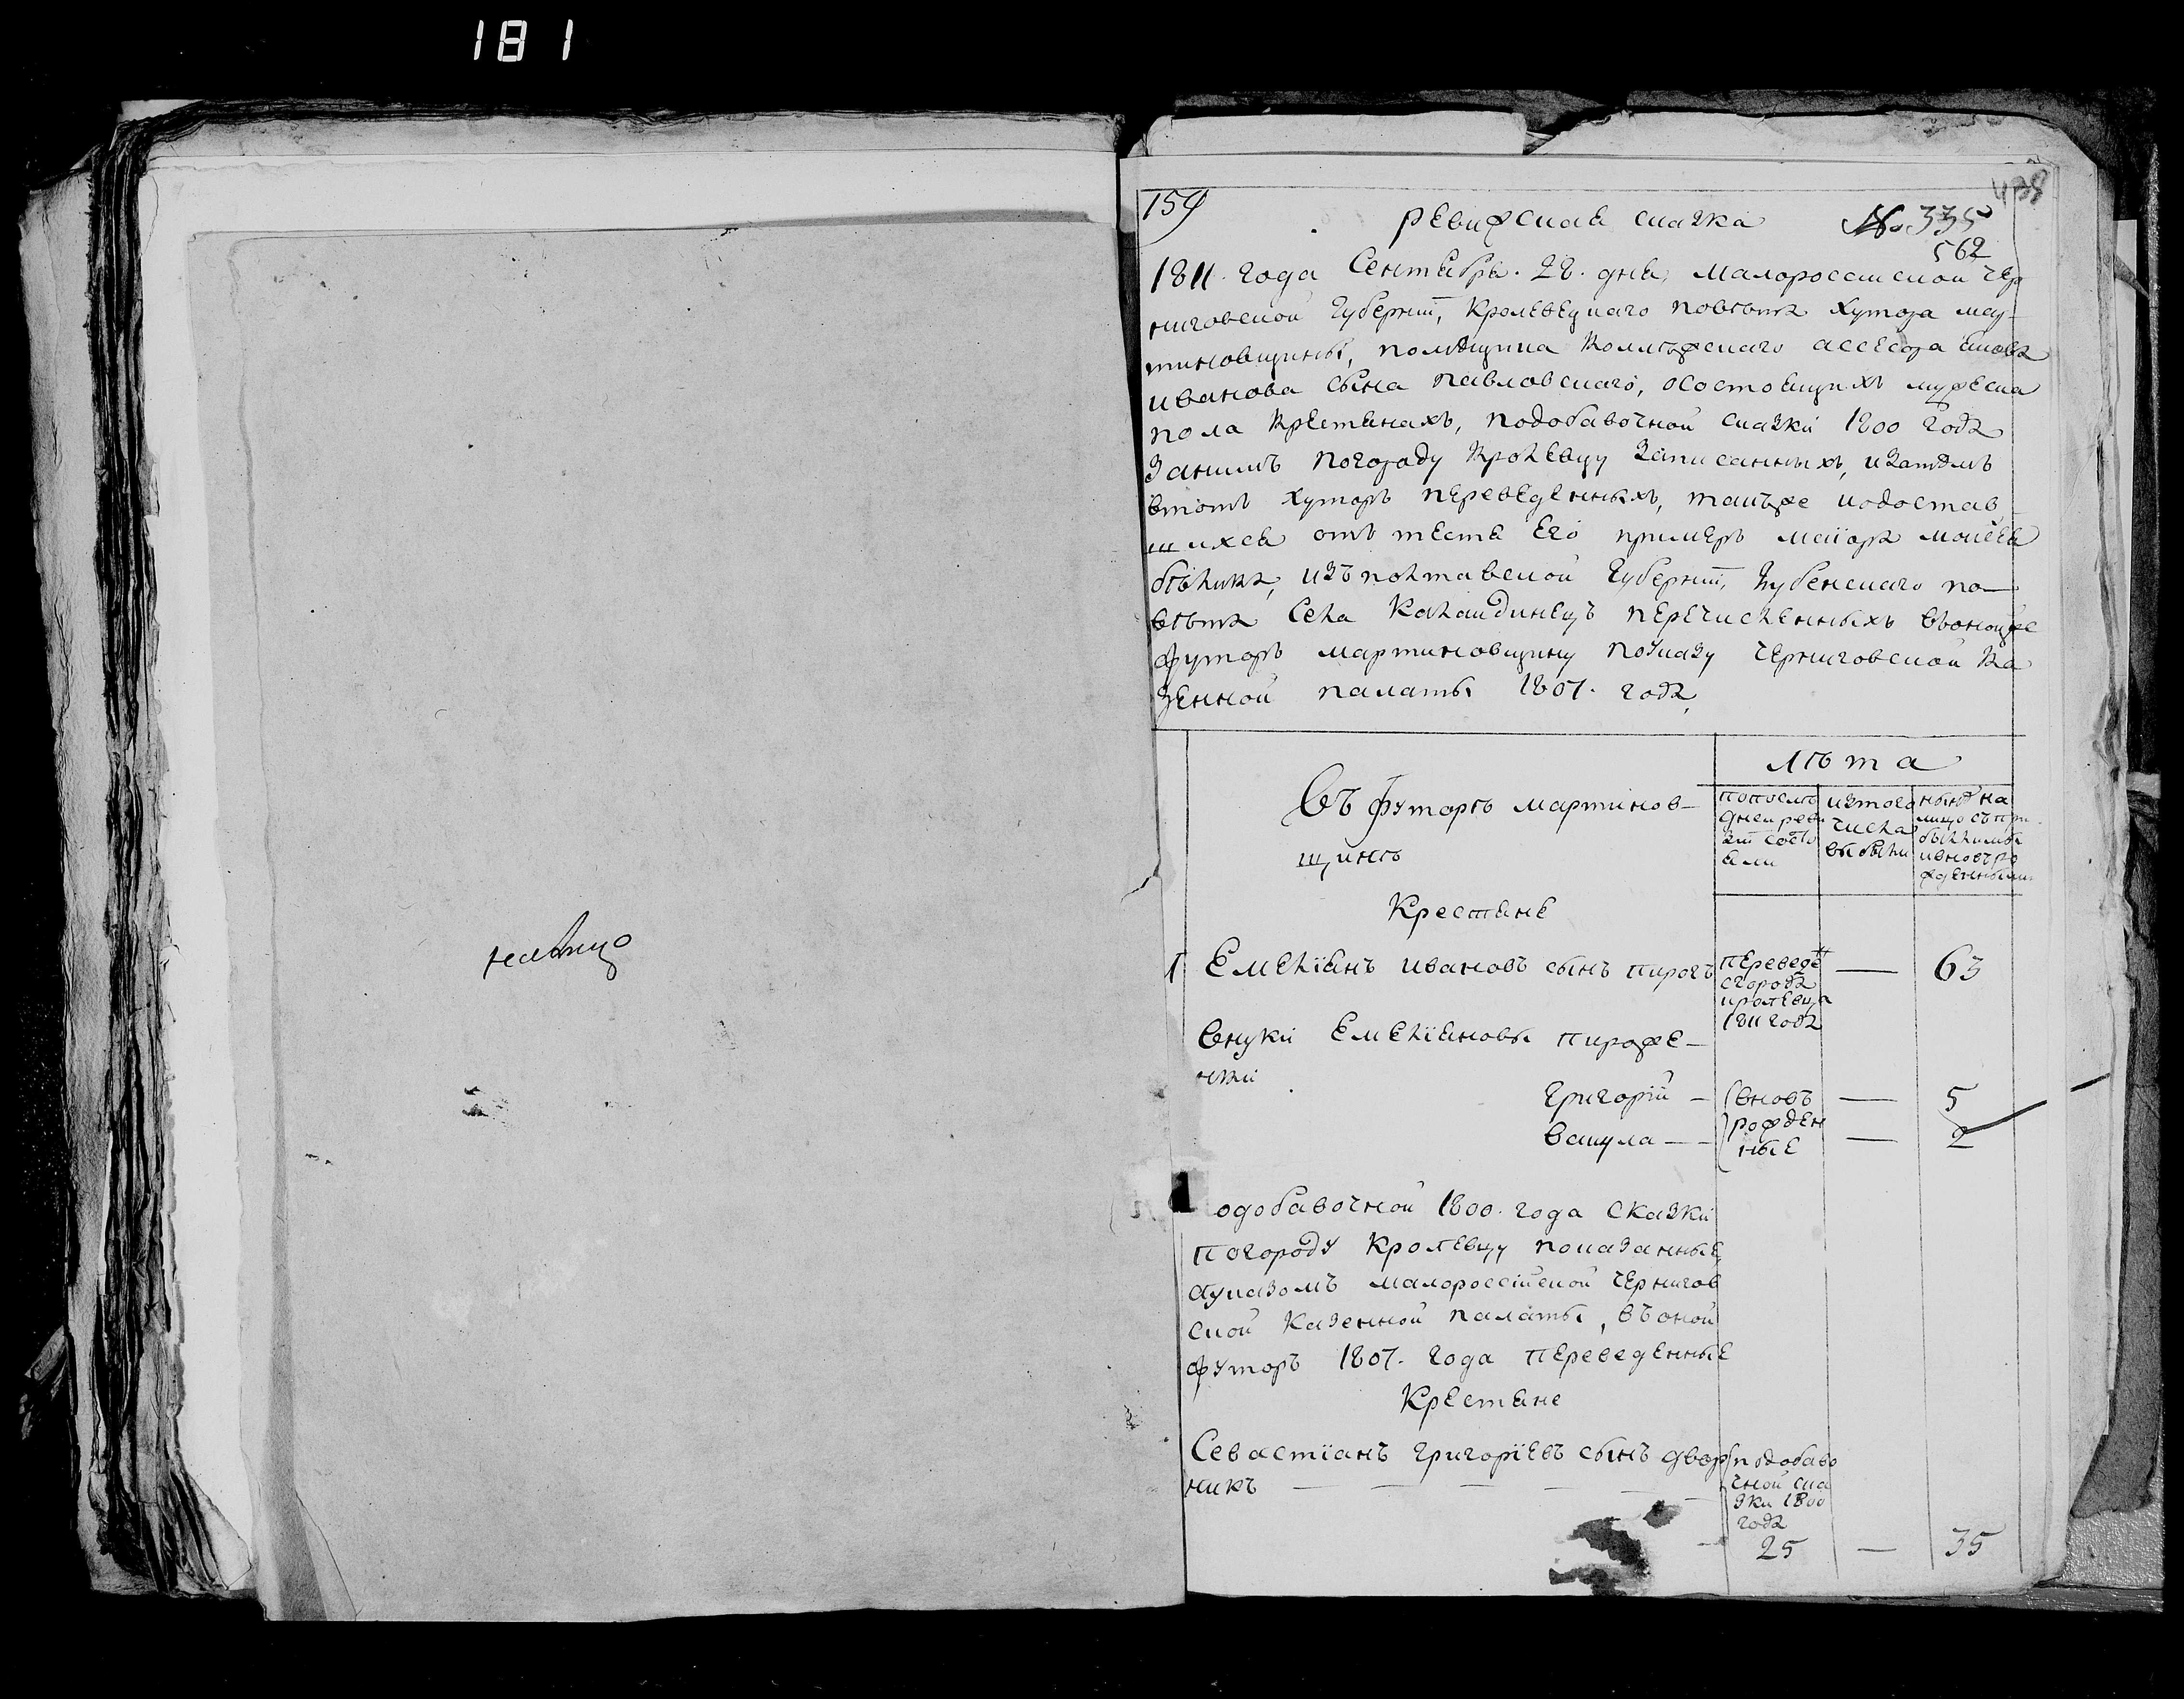 181
159
438
ревизская сказка № 335
562
1811. года Сентября. 28. дня, малороссийской чер
ниговской губернии, Кролевецкаго повѣта хутора мар-
тиновщины, помѣщика Коллѣжскаго ассесора
иванова сына павловскаго, осостоящихъ мужеска
пола крестянахъ, подобавочной сказки 1800 года
занимъ погороду Кролевцу записанныхъ, изатѣмъ
втотъ хуторъ переведенныхъ, такъже идостав
шихся отъ тестя его примеръ маиора моисея
изъ полтавской губернии, лубенскаго по-
вѣта села Калаидинецъ перечисленныхъ воноиже
футоръ мартиновщину поуказу черниговской ка
зенной палаты 1807. года,
Въ футорѣ мартинов-
щинѣ
лѣта
попослѣ
дней реви
зіи состо
яли
изтого
числа
выбыли
нынѣ на
лицо съ при
былыми
ивновъ ро
жденными
Крестяне
1 Емеліянъ ивановъ сынъ пирогъ
переведен
сгорода
кролевца
1811 года
— 63
Внуки Емеліяновы пироже-
нки
григорій — вновъ — 5
вакула — — рожден — 2
ные
одобавочной 1800. года сказки
погороду Кролевцу показанные,
аууказомъ малороссійской чернигов
ской казенной палаты, въ оной
футоръ 1807. года переведенные
Крестяне
Севастіянъ григоріевъ сынъ двор
никъ — — — — — —
подобаво
чной ска
зки 1800
года
25 — 35